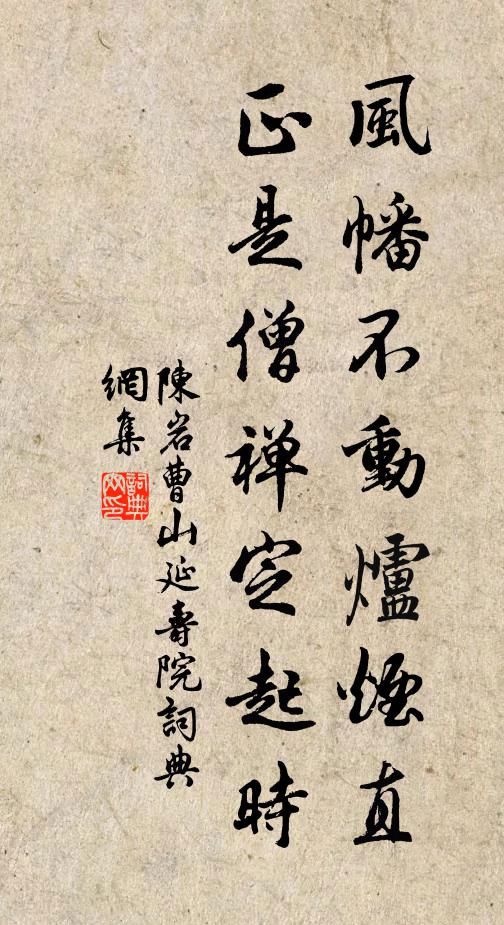 風幡不動爐煙直
正是僧禅定起時
陳岩曹山延壽院詞典
網集
詞典網印